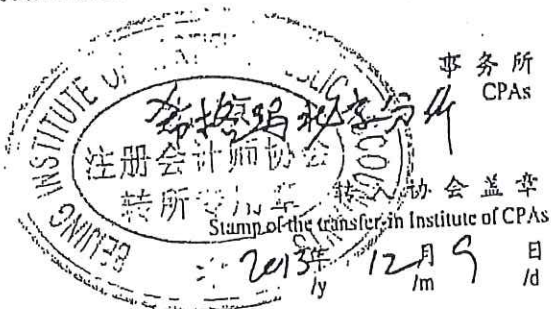 事务所
CPAs
希格玛北京分所
BEIJING INSTITUTE OF
注册会计师协会
转所专用章
转入协会盖章
Stamp of the transfer-in Institute of CPAs
2013年 12月 9 日
/y /m /d